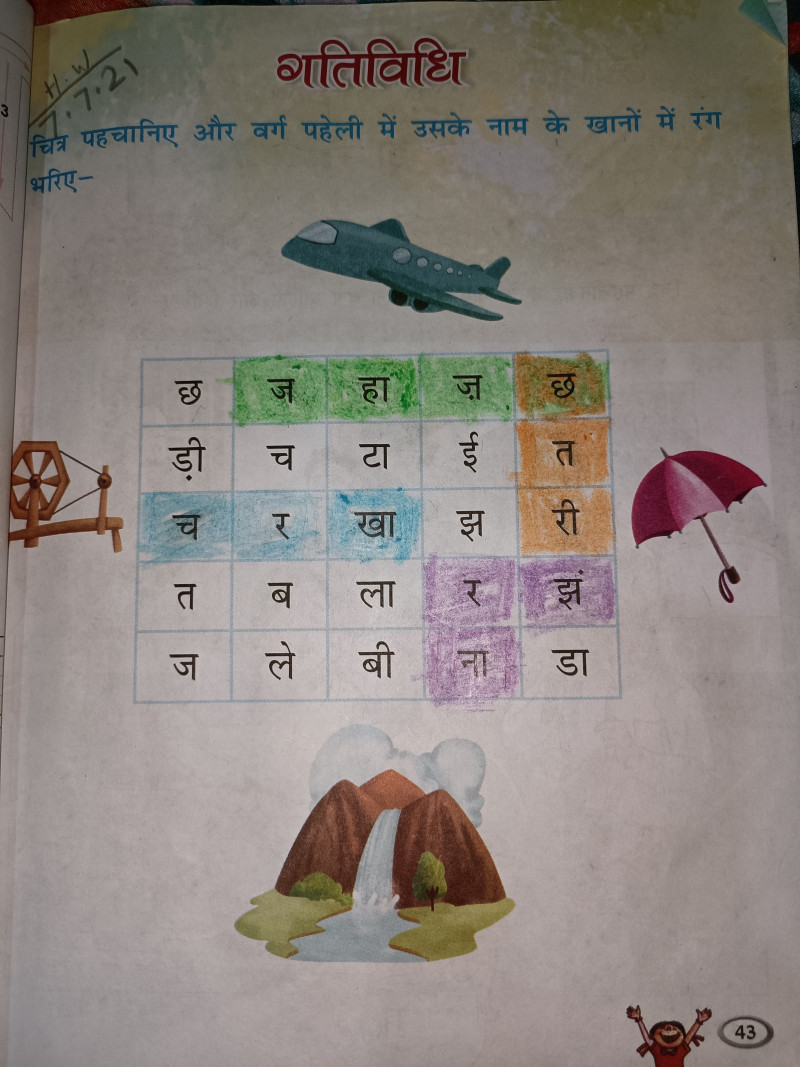 गतिविधि
H.W
7.7.21
चित्र पहचानिए और वर्ग पहेली में उसके नाम के खानों में रंग
भरिए–
छ ज हा ज़ छ
ड़ी च टा ई त
च र खा झ री
त ब ला र झं
ज ले बी ना डा
43
3